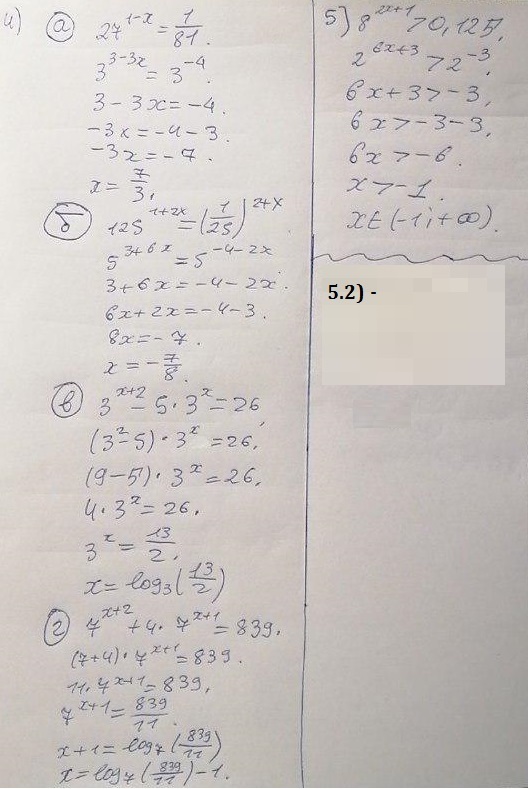 4) а) 27^(1-x) = 1/81.
3^(3-3x) = 3^(-4).
3 - 3x = -4.
-3x = -4 - 3.
-3x = -7.
x = 7/3.
б) 125^(1+2x) = (1/25)^(2+x)
5^(3+6x) = 5^(-4-2x)
3 + 6x = -4 - 2x.
6x + 2x = -4 - 3.
8x = -7.
x = -7/8.
в) 3^(x+2) - 5 · 3^x = 26,
(3^2 - 5) · 3^x = 26,
(9 - 5) · 3^x = 26,
4 · 3^x = 26.
3^x = 13/2.
x = log_3(13/2)
г) 7^(x+2) + 4 · 7^(x+1) = 839.
(7+4) · 7^(x+1) = 839.
11 · 7^(x+1) = 839,
7^(x+1) = 839/11.
x + 1 = log_7(839/11)
x = log_7(839/11) - 1.
5) 8^(2x+1) > 0,125,
2^(6x+3) > 2^(-3),
6x + 3 > -3,
6x > -3 - 3,
6x > -6.
x > -1.
x ∈ (-1; +∞).
5.2) -